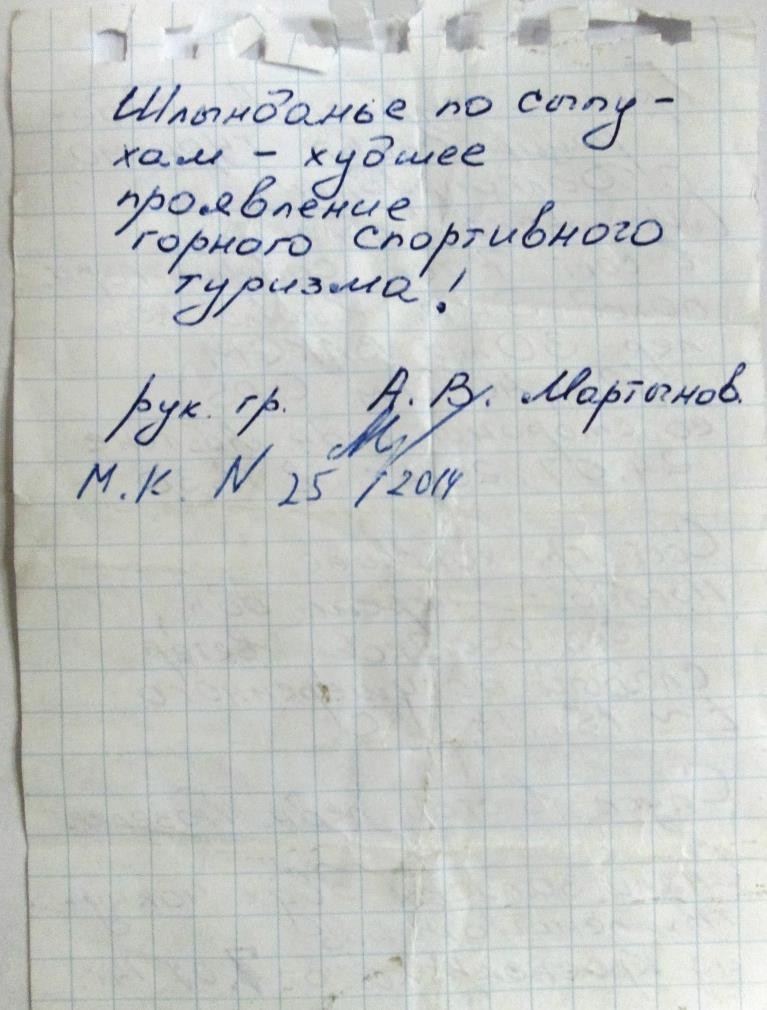 Шлынданье по сыпу-
хам - худшее
проявление
горного спортивного
туризма!
рук. гр. А. В. Мартынов.
М.К. N 25 / 2014